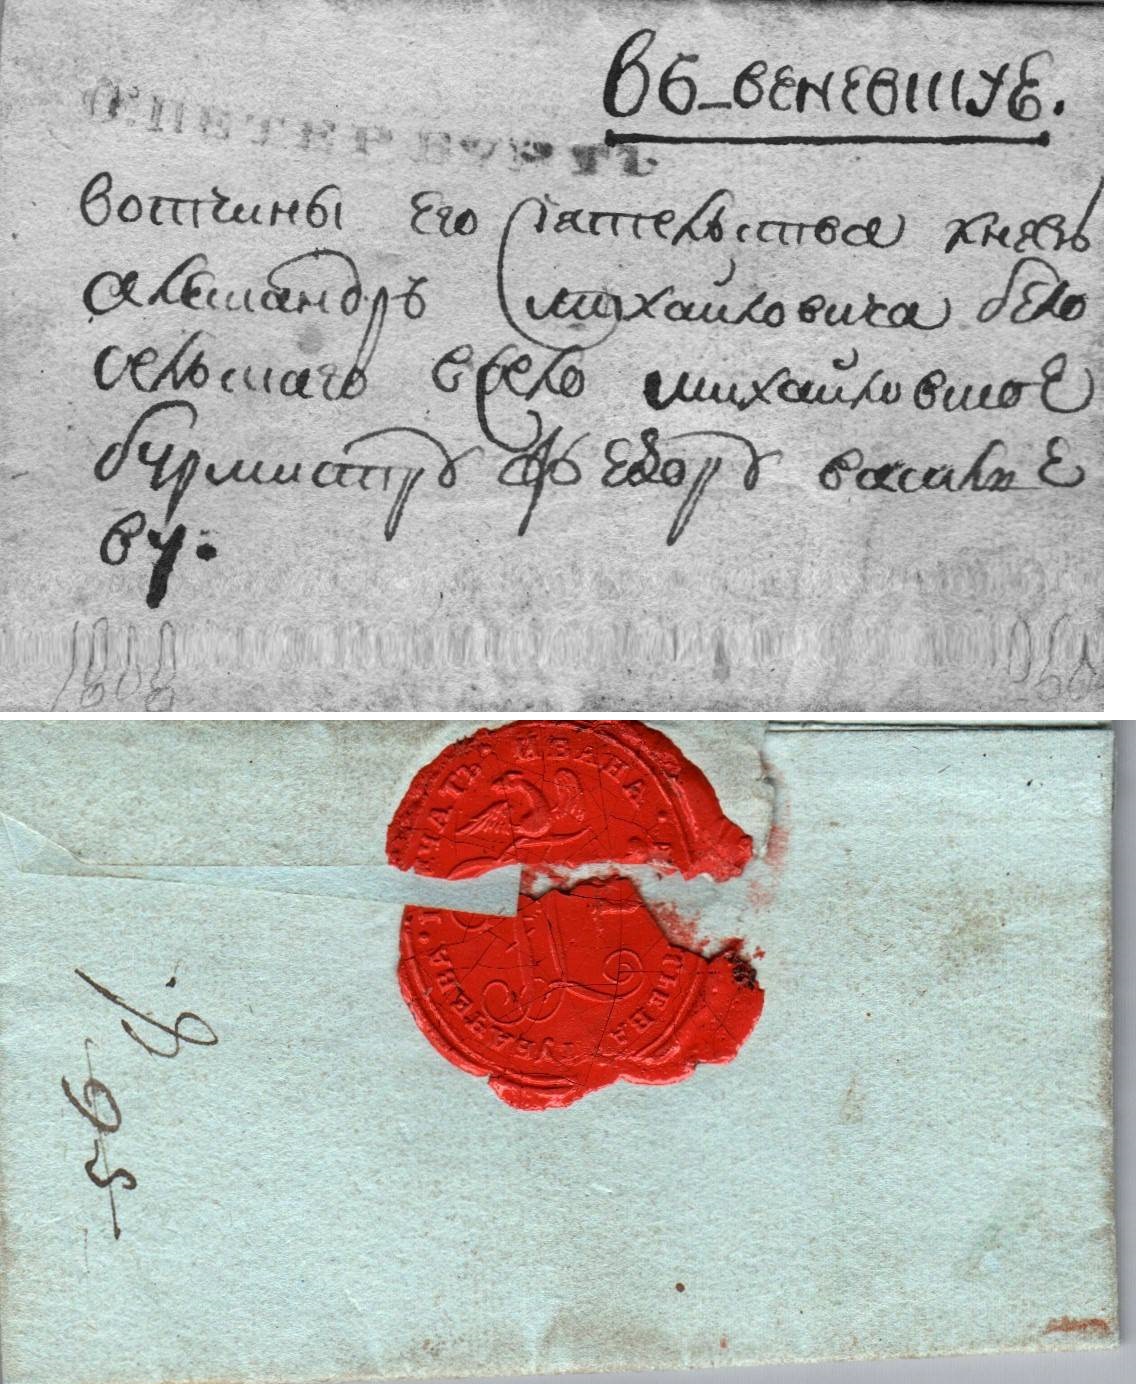 въ-веневшуе.
С.ПЕТЕРБУРГЪ.
вотчины его сіятельства князь
алекшандръ михайловича бело
сельшаго всело михайловшое
бурмистру Федору василье
ву.
1808
ЧАТЬ. ИВАНА.
ЕВА ГУБАРЕВА.